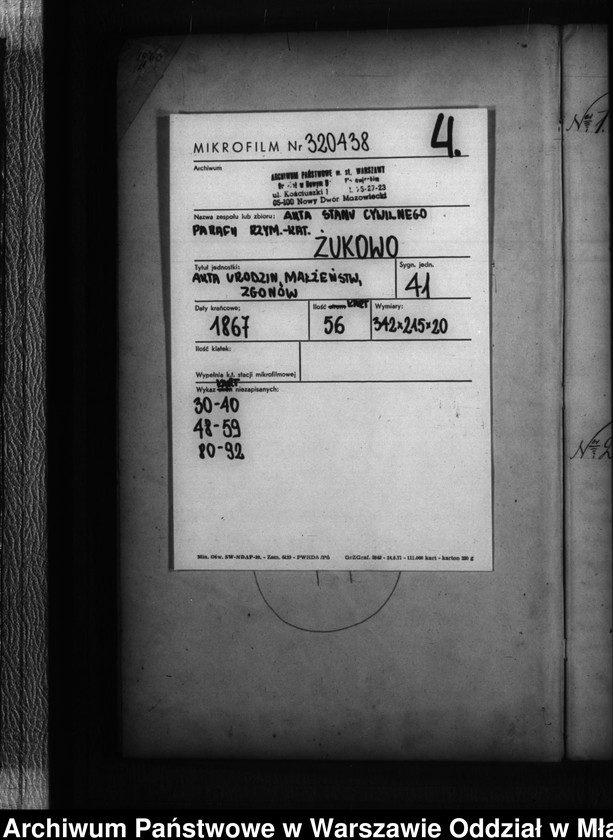 MIKROFILM Nr 320438
4.
Archiwum
ARCHIWUM PAŃSTWOWE m. st. WARSZAWY
w Nowym
ul. Kościuszki 1
05-100 Nowy Dwór Mazowiecki
Nazwa zespołu lub zbioru: AKTA STANU CYWILNEGO
PARAFII RZYM.-KAT.
ŻUKOWO
Tytuł jednostki:
Sygn. jedn.
AKTA URODZIN, MAŁŻEŃSTW,
ZGONÓW
41
Daty krańcowe:
Ilość KART
Wymiary:
1867
56
342x215x20
Ilość klatek:
Wypełnia k.t. stacji mikrofilmowej
KART
Wykaz niezapisanych:
30-40
48-59
80-92
Min. Ośw. SW-NDAP-20. - Zam. - PWHDA JPŚ
GrZGraf. - 111.000 kart - karton 220 g
Nr 1
Nr 2
Archiwum Państwowe w Warszawie Oddział w Mła